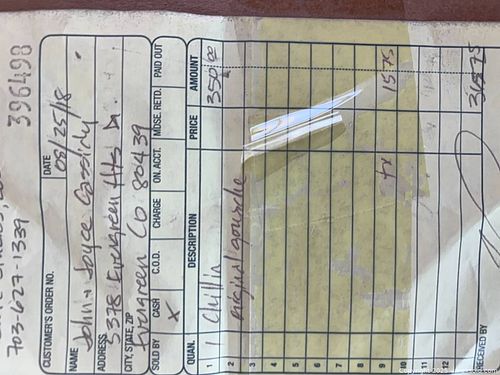 396498
703-627-1339
CUSTOMER'S ORDER NO. DATE 08/25/18
NAME John & Joyce Cassidy
ADDRESS 5378 Evergreen Hts Dr.
CITY, STATE, ZIP Evergreen CO 80439
SOLD BY CASH C.O.D. CHARGE ON. ACCT. MDSE. RETD. PAID OUT
X
QUAN. DESCRIPTION PRICE AMOUNT
1 1 Chillin 350 00
2 original gouache
3
4
5
6
7
8
9 tx 15 75
10
11
12 365 75
RECEIVED BY